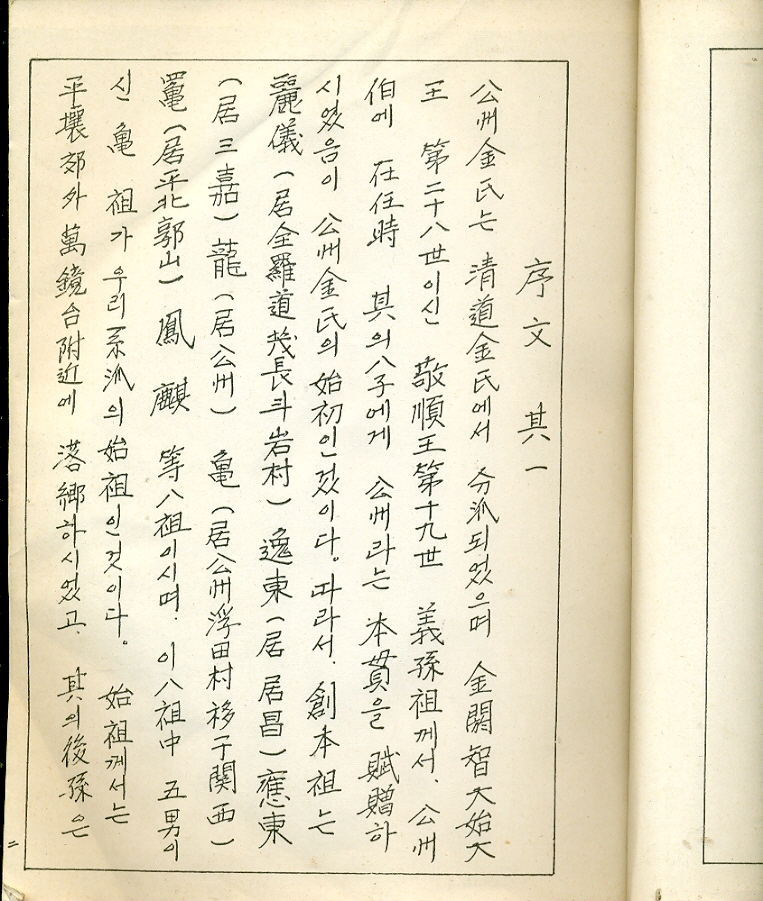 序文 其一
公州金氏는 清道金氏에서 分派되었으며 金閼智大始大
王 第二十八世이신 敬順王第十九世 義孫祖께서、公州
伯에 在任時 其의八子에게 公州라는 本貫을 賦贈하
시었음이 公州金氏의始初인것이다。따라서、創本祖는
麗儀(居全羅道茂長斗岩村)逸東(居 居昌)應東
(居三嘉)龍(居公州)亀(居公州浮田村移于關西)
鼌(居平北郭山)鳳 麒 等八祖이시며、이八祖中 五男이
신 亀 祖가 우리系派의始祖인것이다。始祖께서는
平壤郊外萬鏡台附近에 落鄉하시었고、其의後孫은
二